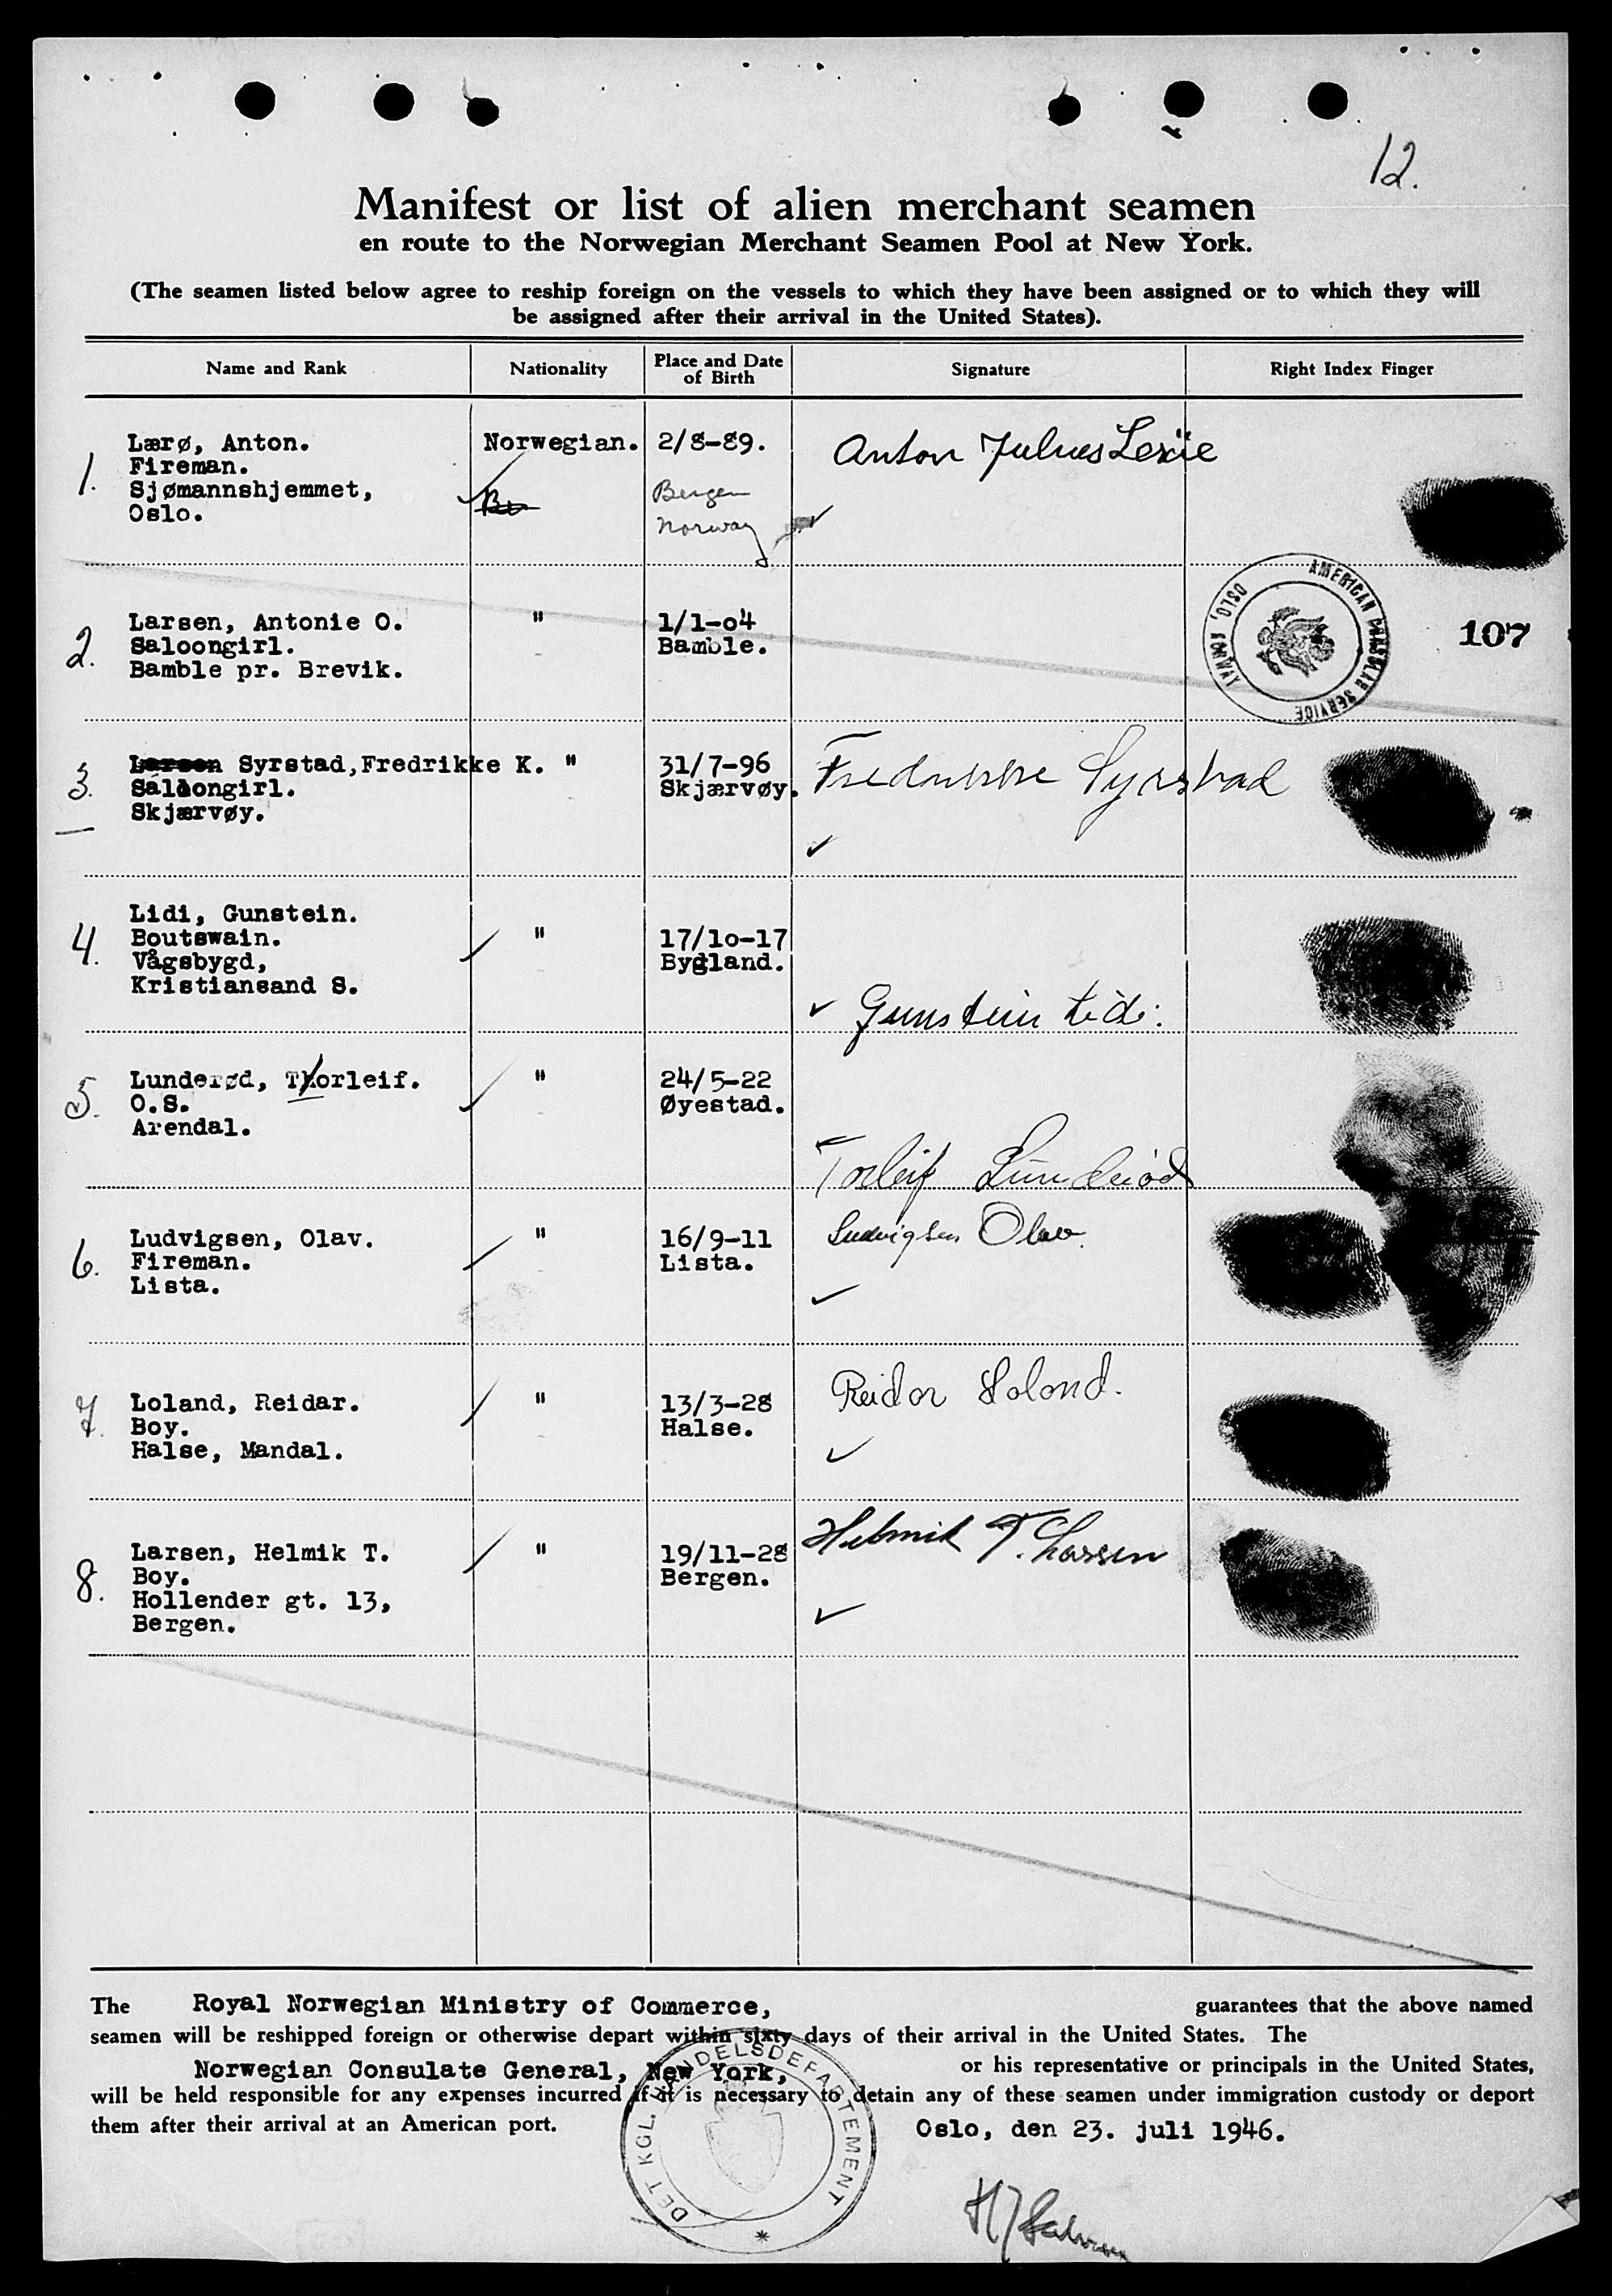 12.
Manifest or list of alien merchant seamen
en route to the Norwegian Merchant Seamen Pool at New York.
(The seamen listed below agree to reship foreign on the vessels to which they have been assigned or to which they will
be assigned after their arrival in the United States).
Name and Rank
Nationality
Place and Date
of Birth
Signature
Right Index Finger
1.
Lærø, Anton.
Fireman.
Sjømannshjemmet,
Oslo.
Norwegian.
2/8-89.
Bergen
Norway
Anton Julius
2.
Larsen, Antonie O.
Saloongirl.
Bamble pr. Brevik.
"
1/1-o4
Bamble.
AMERICAN CONSULAR SERVICE
OSLO, NORWAY
107
3.
Larsen Syrstad,Fredrikke K.
Saloongirl.
Skjærvøy.
"
31/7-96
Skjærvøy.
Fredrikke Syrstad
4.
Lidi, Gunstein.
Boutswain.
Vågsbygd,
Kristiansand S.
"
17/1o-17
Bygland.
Gunstein Lidi
5.
Lunderød, Thorleif.
O.S.
Arendal.
"
24/5-22
Øyestad.
Torleif Lunderød
6.
Ludvigsen, Olav.
Fireman.
Lista.
"
16/9-11
Lista.
Ludvigsen Olav.
7.
Loland, Reidar.
Boy.
Halse, Mandal.
"
13/3-28
Halse.
Reidar Loland.
8.
Larsen, Helmik T.
Boy.
Hollender gt. 13,
Bergen.
"
19/11-28
Bergen.
Helmik T. Larsen
The Royal Norwegian Ministry of Commerce, guarantees that the above named
seamen will be reshipped foreign or otherwise depart within sixty days of their arrival in the United States. The
Norwegian Consulate General, New York, or his representative or principals in the United States,
will be held responsible for any expenses incurred if it is necessary to detain any of these seamen under immigration custody or deport
them after their arrival at an American port.
Oslo, den 23. juli 1946.
DET KGL. HANDELSDEPARTEMENT